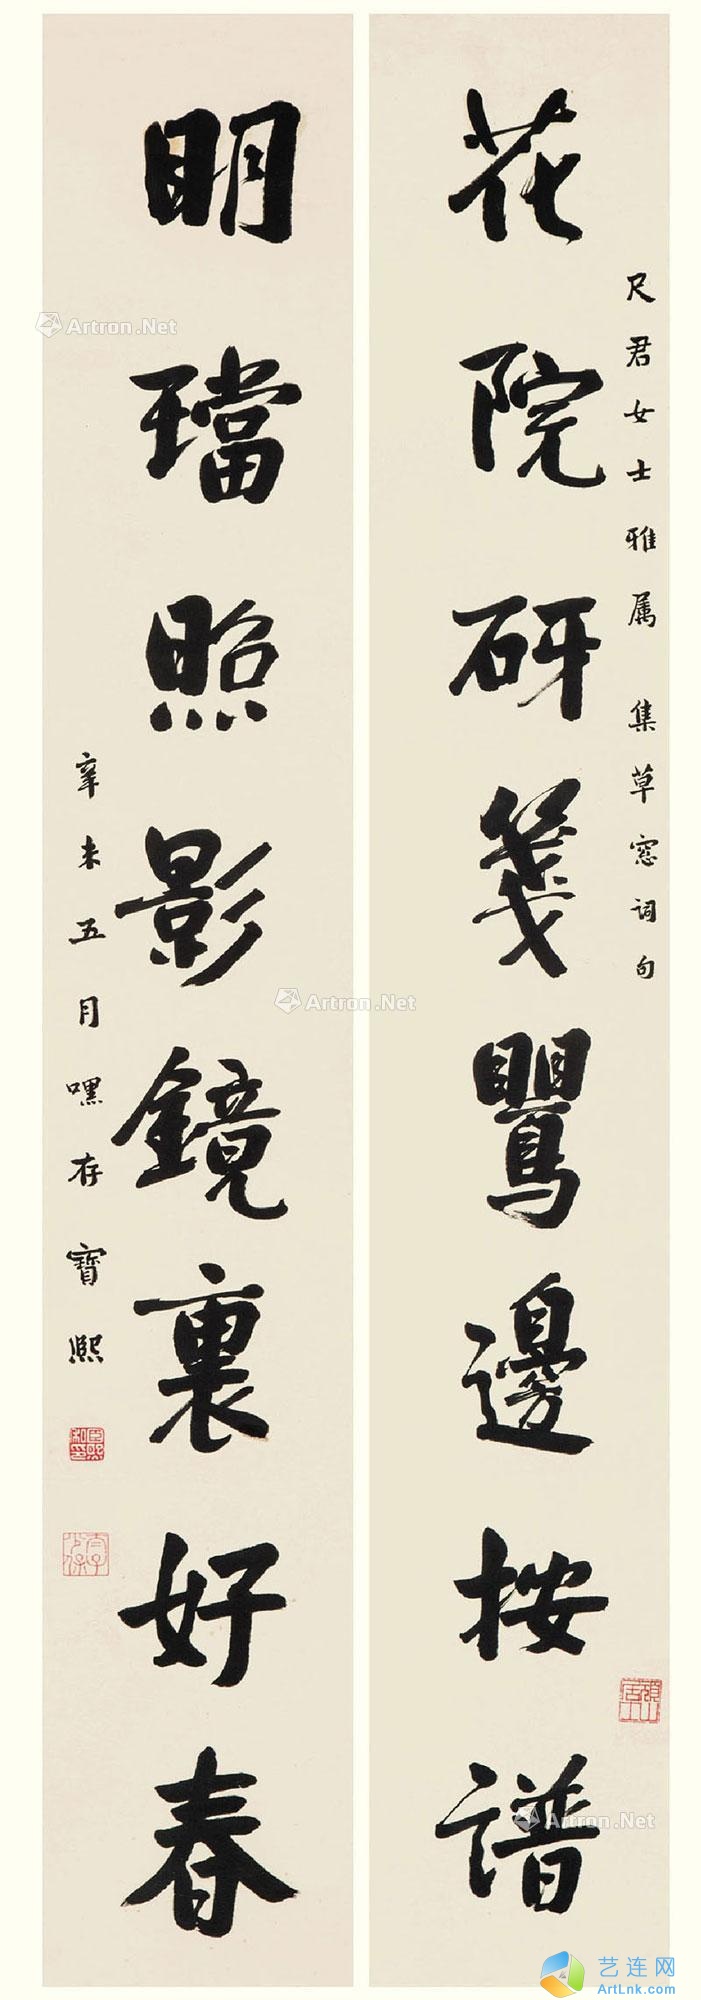 花院砑箋鸎邊按譜
尺君女士雅属 集草窓词句
明璫照影鏡裏好春
辛未五月 嘿存寶熙
Artron.Net
Artron.Net
Artron.Net
艺连网
ArtLnk.com